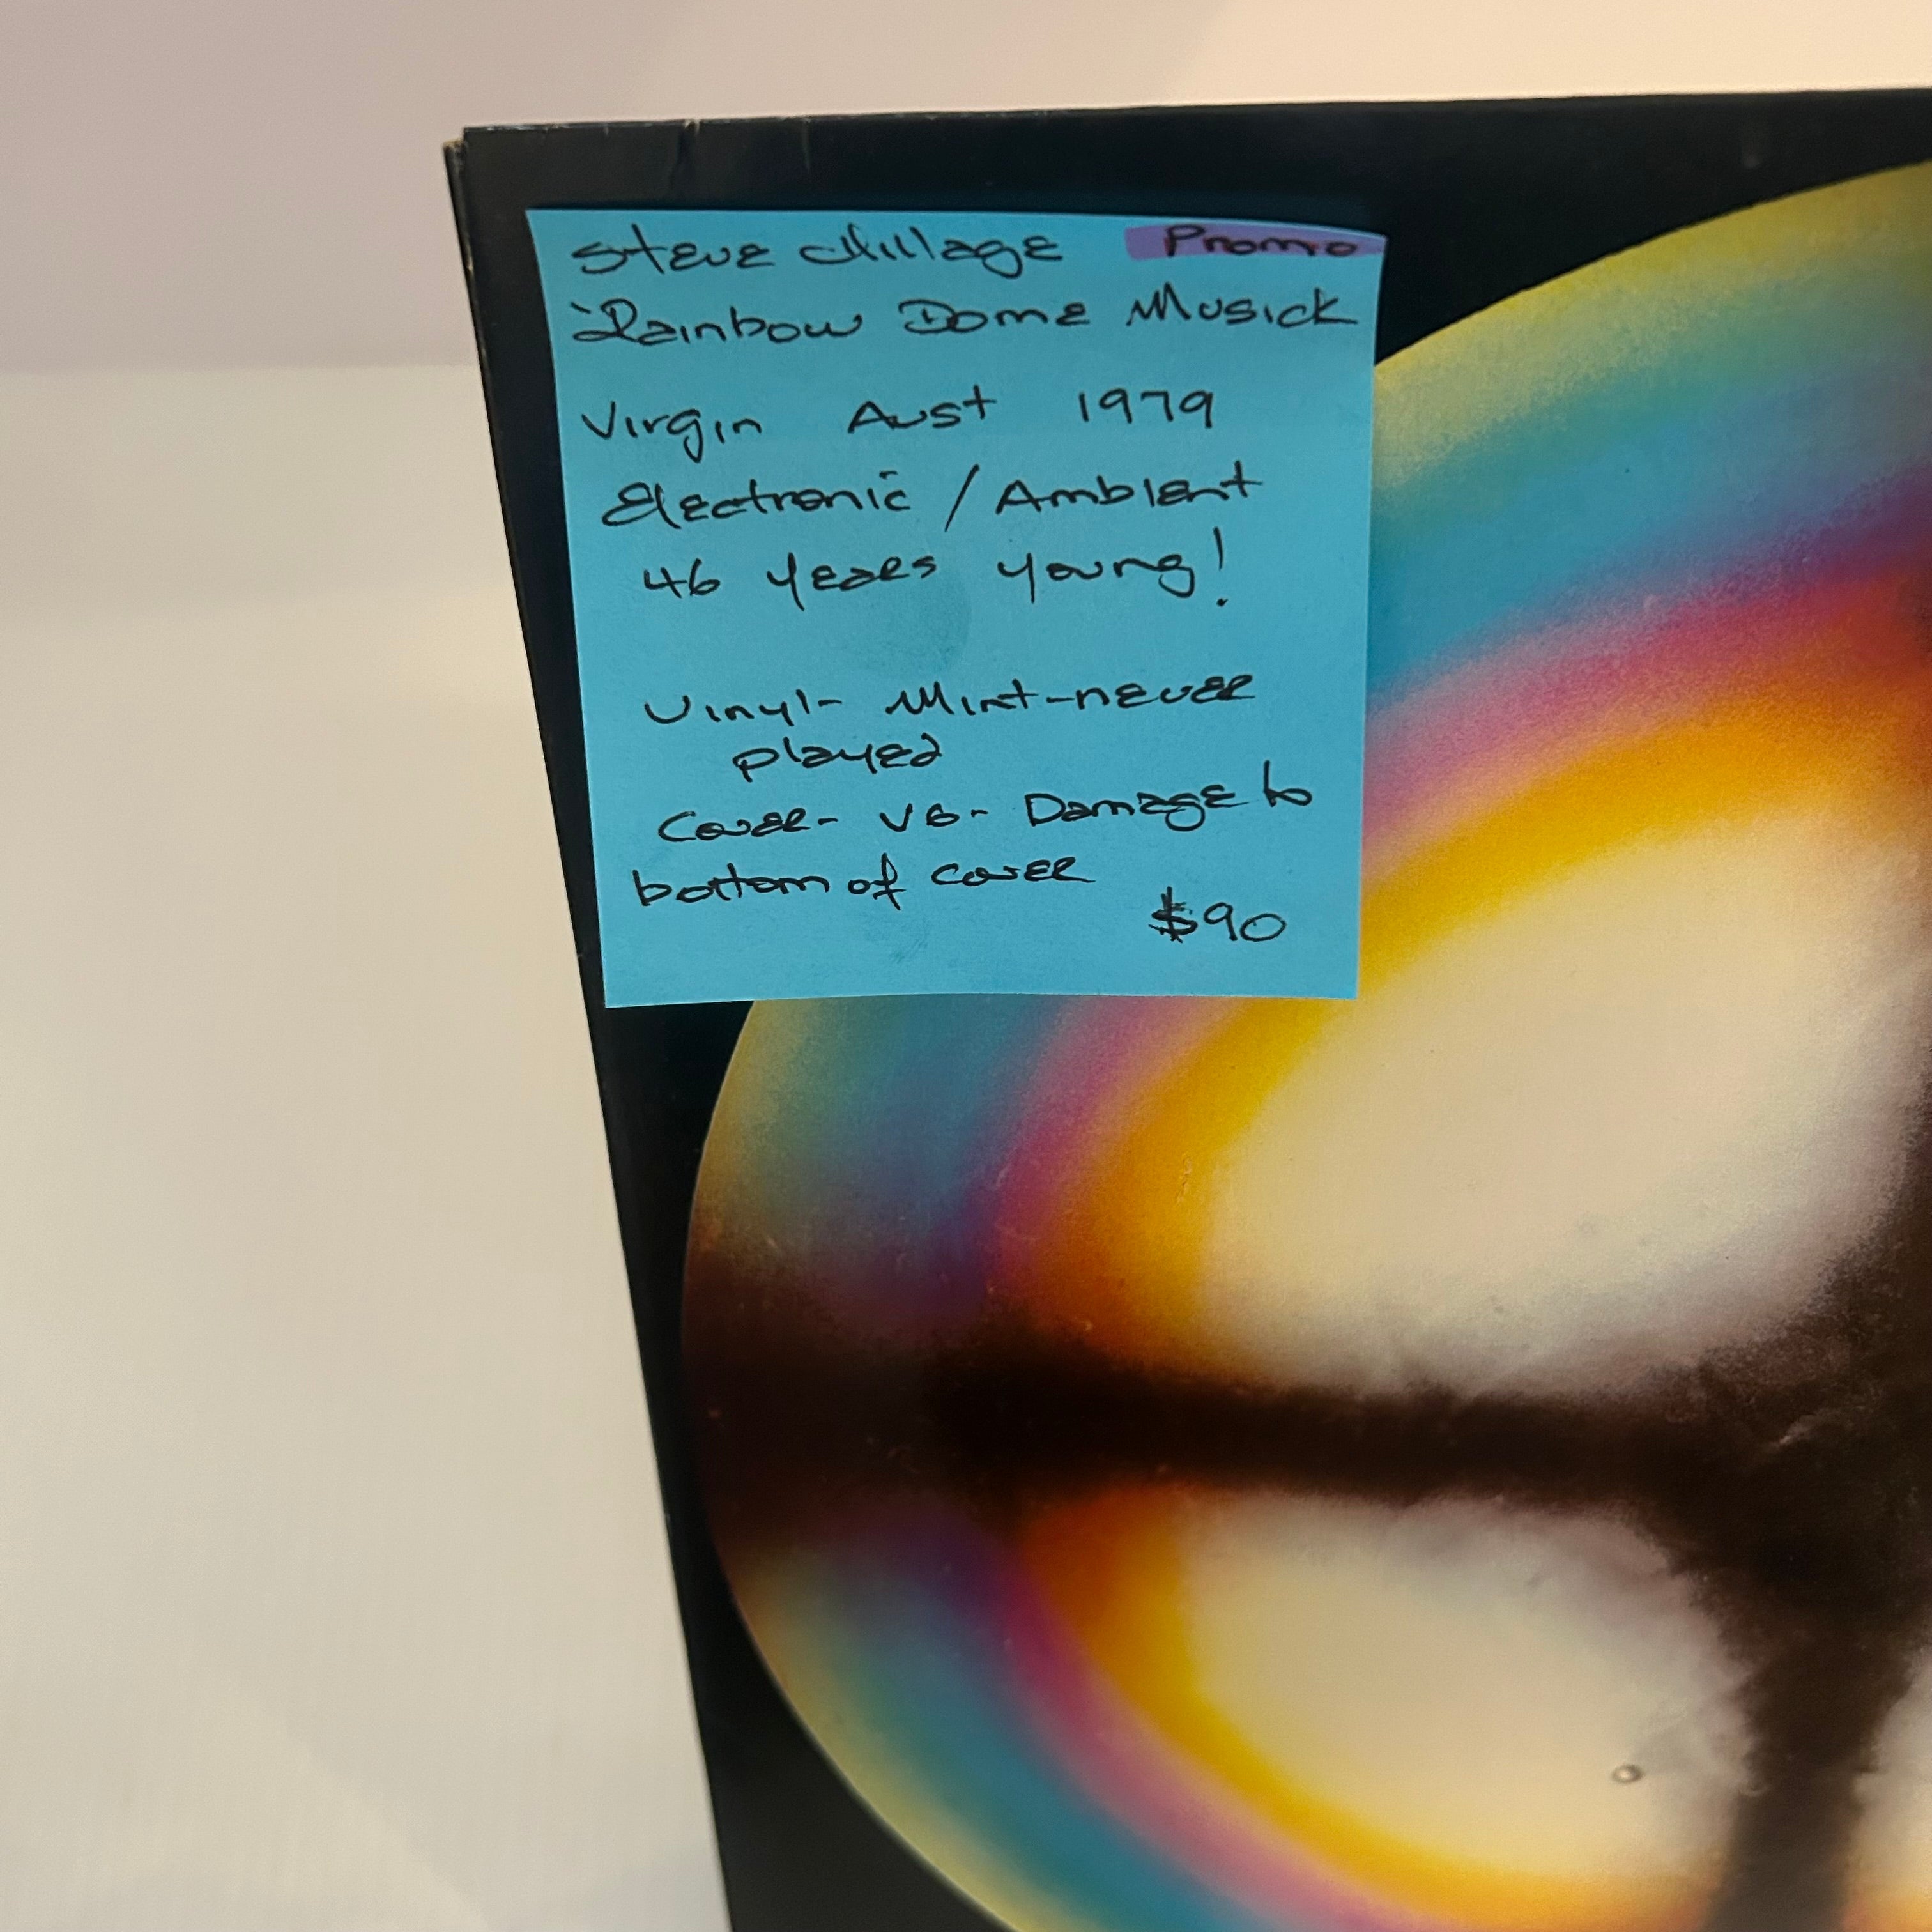 Steve Hillage Promo
Rainbow Dome Musick
Virgin Aust 1979
Electronic / Ambient
46 years young!
Vinyl- Mint-never
played
Cover- VG- Damage to
bottom of cover
$90